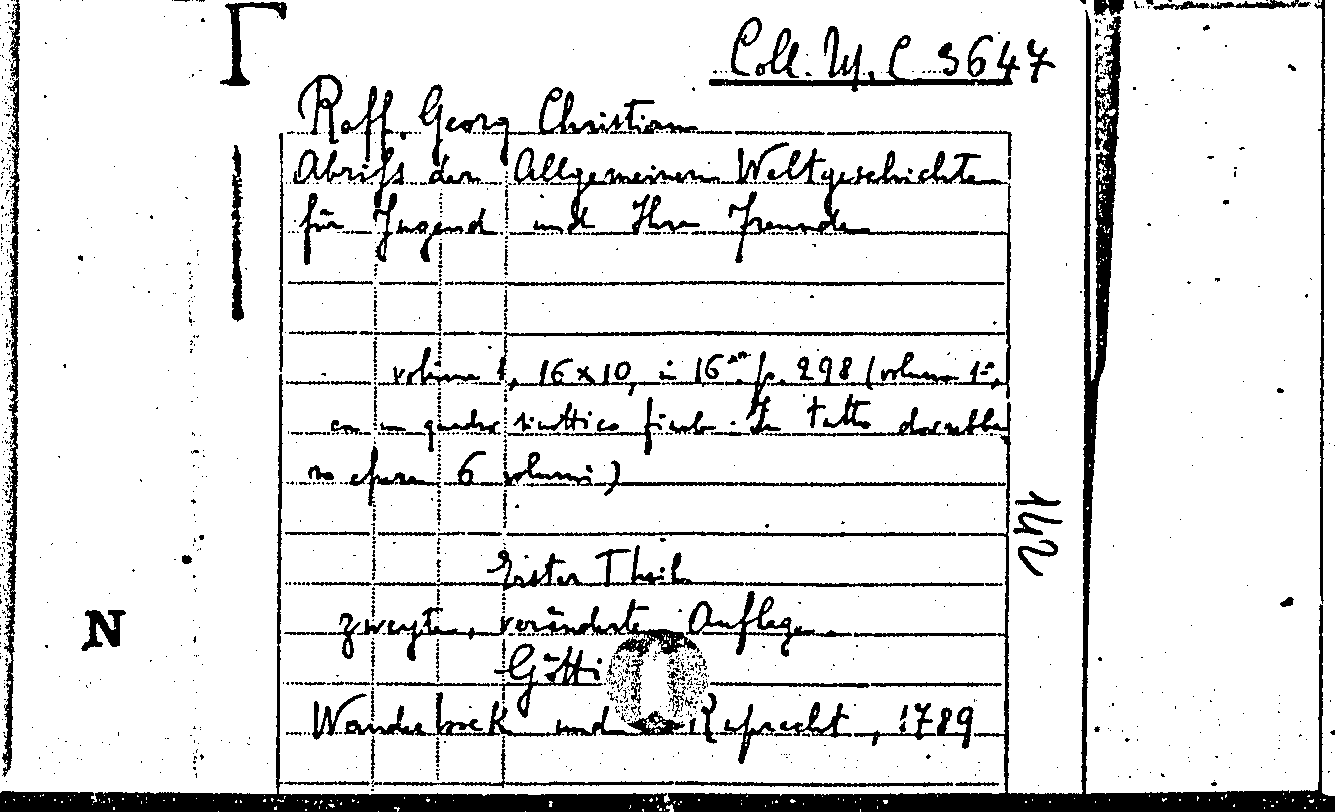 Coll. M. C 3647
Raff. Georg Christian
Abrifs der Allgemeinen Weltgeschichte
für Jugend und Ihre Freunde
volume 1, 16x10, in 16mo p. 298 (volume 1=,
con un quadro sinottico finale. In tutto dovrebbe
ro essere 6 volumi)
142
Erster Theil
zweyte, veränderte Auflage
N
Götti
Wandebock und Ruprecht, 1789